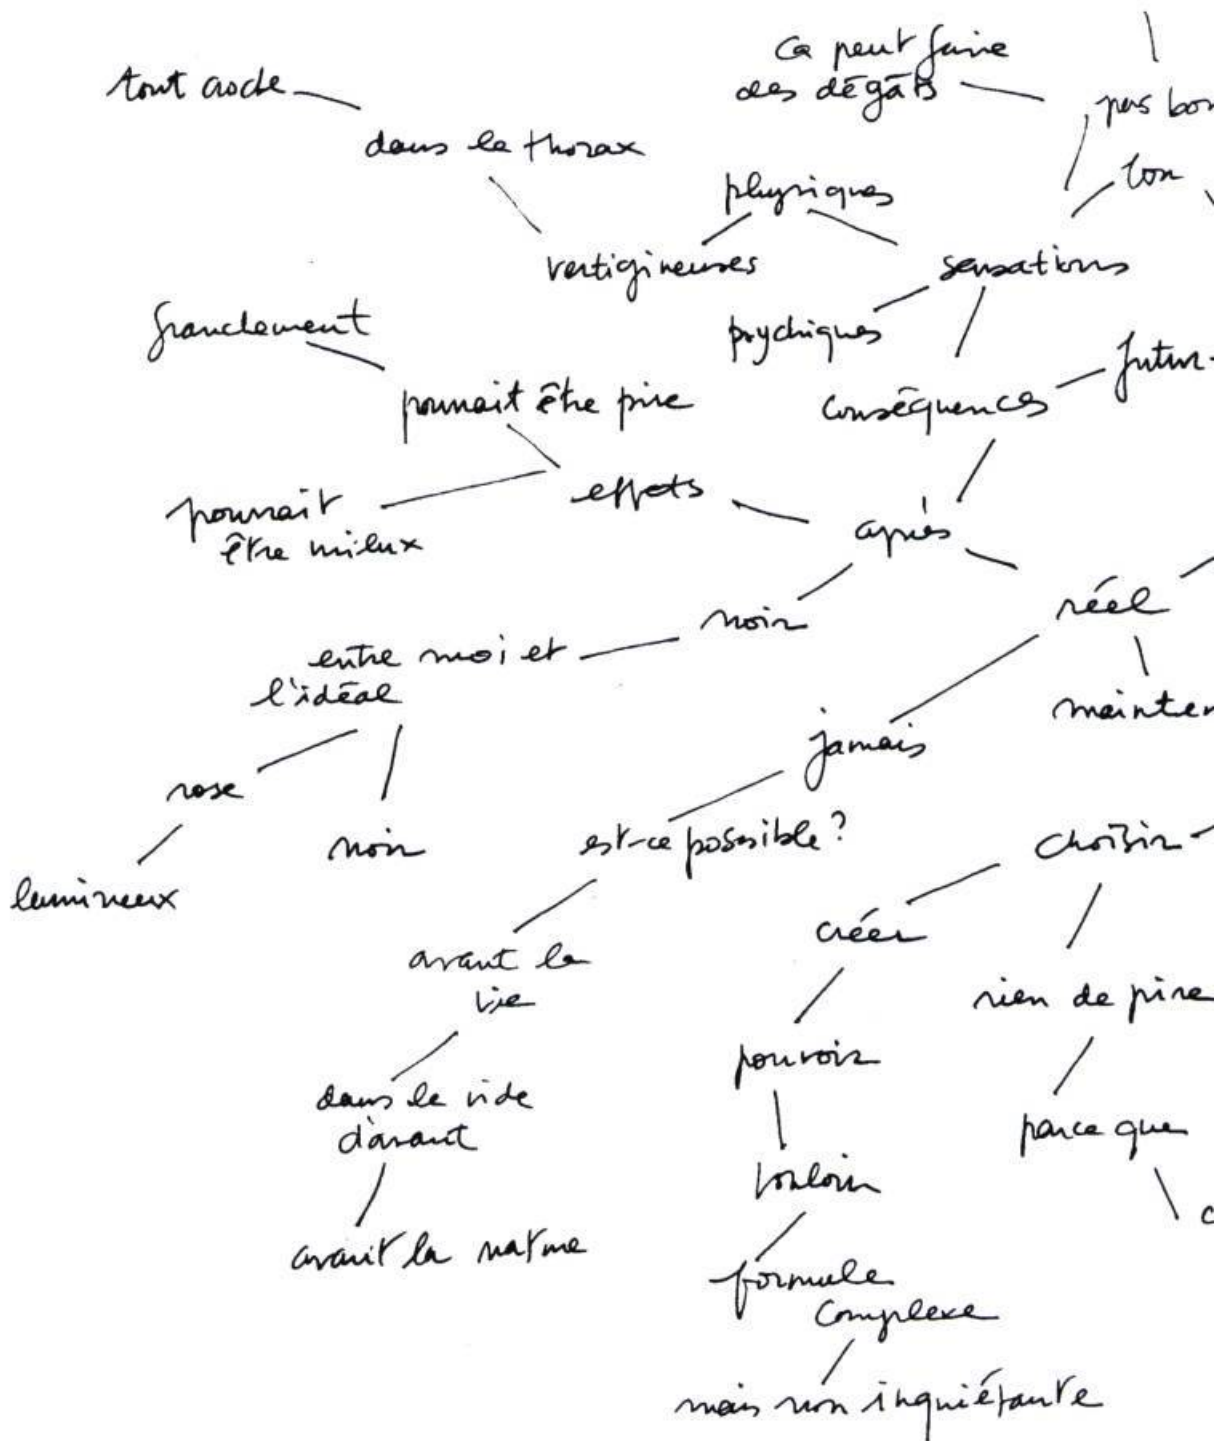 ça peut faire
des dégâts
tout croche
pas bon
dans le thorax
bon
physiques
vertigineuses
sensations
psychiques
franchement
futur
pourrait être pire
conséquences
effets
pourrait
être milux
après
noir
réel
entre moi et
l'idéal
mainten
jamais
rose
noir
est-ce possible?
choisir
lumineux
créer
avant la
vie
rien de pire
pouvoir
dans le vide
d'avant
parce que
vouloir
c
avant la nature
formule
complexe
mais non inquiétante